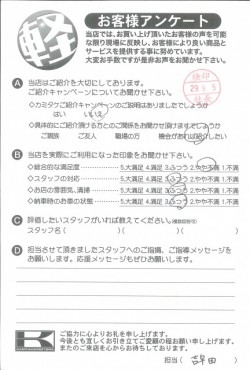 軽
お客様アンケート
当店では、お買い上げ頂いたお客様の声を可能な
限り現場に反映し、お客様により良い商品と
サービスを提供する事に努めています。
大変お手数ですが是非お声をお聞かせ下さい。
A 当店はご紹介を大切にしております。
ご紹介キャンペーンについてお聞かせ下さい。
◇カミタケご紹介キャンペーンのご説明はありましたでしょうか
はい いいえ
◇具体的にご紹介頂ける方とのご関係をお聞かせ頂けますでしょうか
ご親族 ご友人 職場の方 機会があれば紹介したい
B 当店を実際にご利用になった印象をお聞かせ下さい。
◇総合的な満足度 5.大満足 4.満足 3.ふつう 2.やや不満 1.不満
◇スタッフの対応 5.大満足 4.満足 3.ふつう 2.やや不満 1.不満
◇お店の雰囲気、清掃 5.大満足 4.満足 3.ふつう 2.やや不満 1.不満
◇納車時のお車の状態 5.大満足 4.満足 3.ふつう 2.やや不満 1.不満
C 評価したいスタッフがいれば教えてください。
スタッフ名( )( )
D 担当させて頂きましたスタッフへのご指摘、ご指導メッセージを
お願いします。応援メッセージもぜひお願いします。
ご協力に心よりお礼を申し上げます。
今後とも宜しくお引き立てご愛顧の程お願い申し上げます。
またのご来店を心からお待ちしております。
担当( 吉田 )